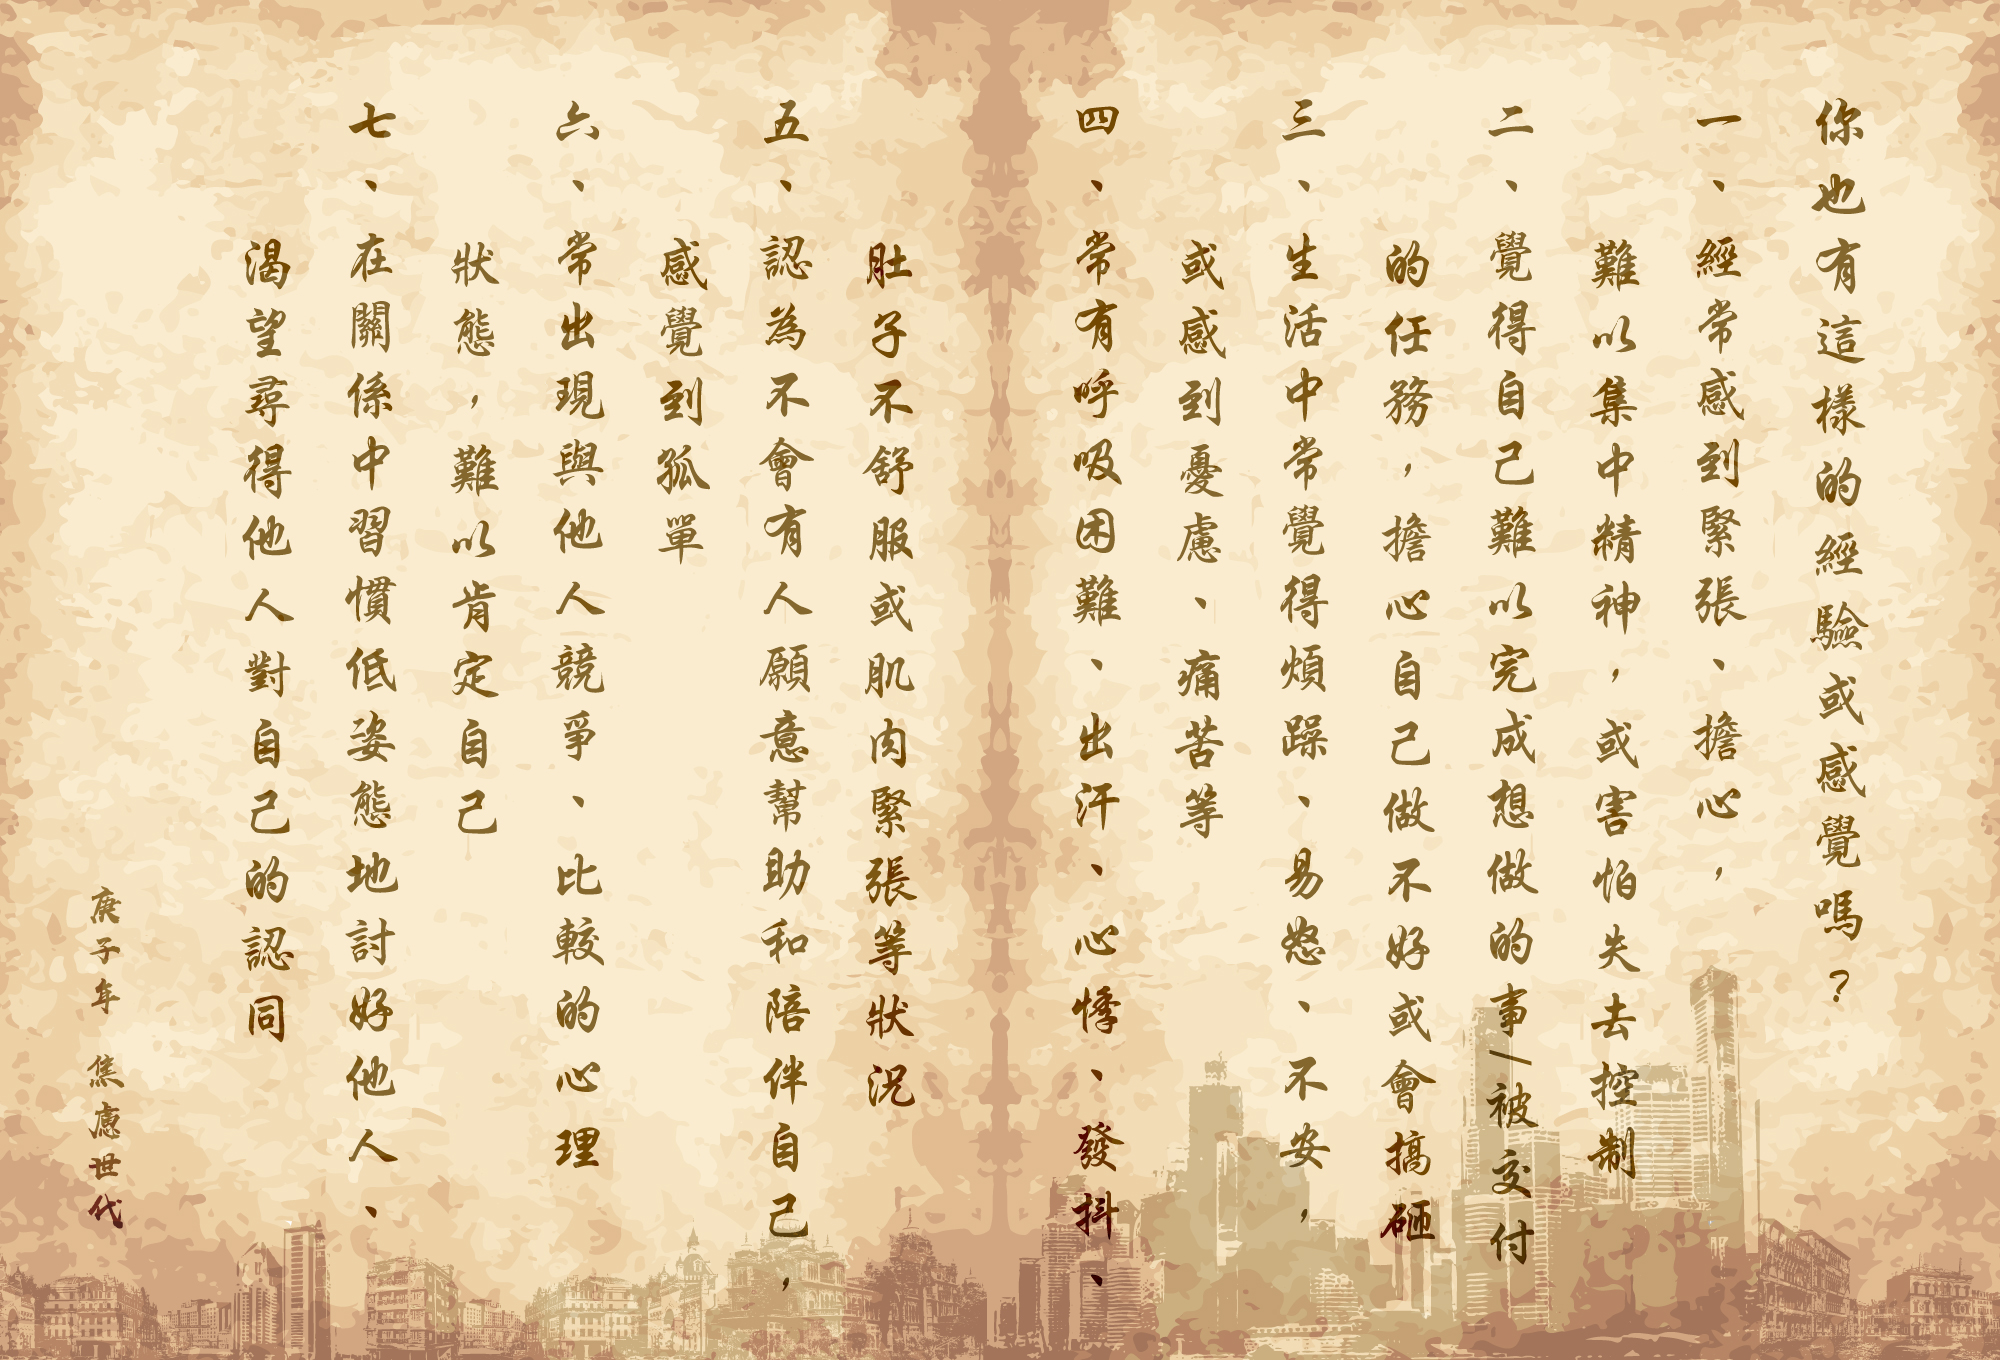 你也有這樣的經驗或感覺嗎？
一、經常感到緊張、擔心，
難以集中精神，或害怕失去控制
二、覺得自己難以完成想做的事/被交付
的任務，擔心自己做不好或會搞砸
三、生活中常覺得煩躁、易怒、不安，
或感到憂慮、痛苦等
四、常有呼吸困難、出汗、心悸、發抖、
肚子不舒服或肌肉緊張等狀況
五、認為不會有人願意幫助和陪伴自己，
感覺到孤單
六、常出現與他人競爭、比較的心理
狀態，難以肯定自己
七、在關係中習慣低姿態地討好他人、
渴望尋得他人對自己的認同
庚子年 焦慮世代